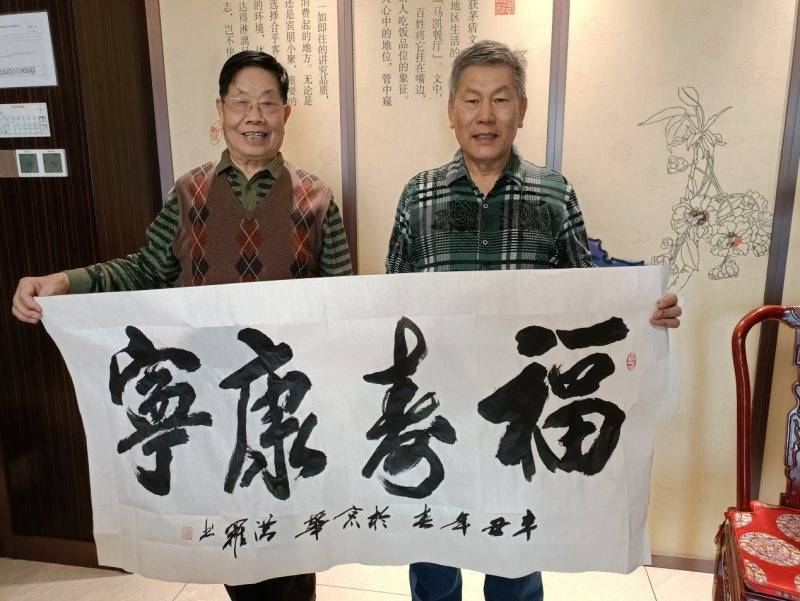 福寿康寧
辛丑年春於京華 洪羅书
获茅盾文
地区生活的
「马凯餐厅」。文中，
百姓将它挂在嘴边，
人吃饭品位的象征。
人心中的地位，管中窥
一如即往的讲究品质，
消费起的地方。无论是
还是宾朋小聚，重要的
选择合乎客
的环境，
达得淋漓
志，岂不